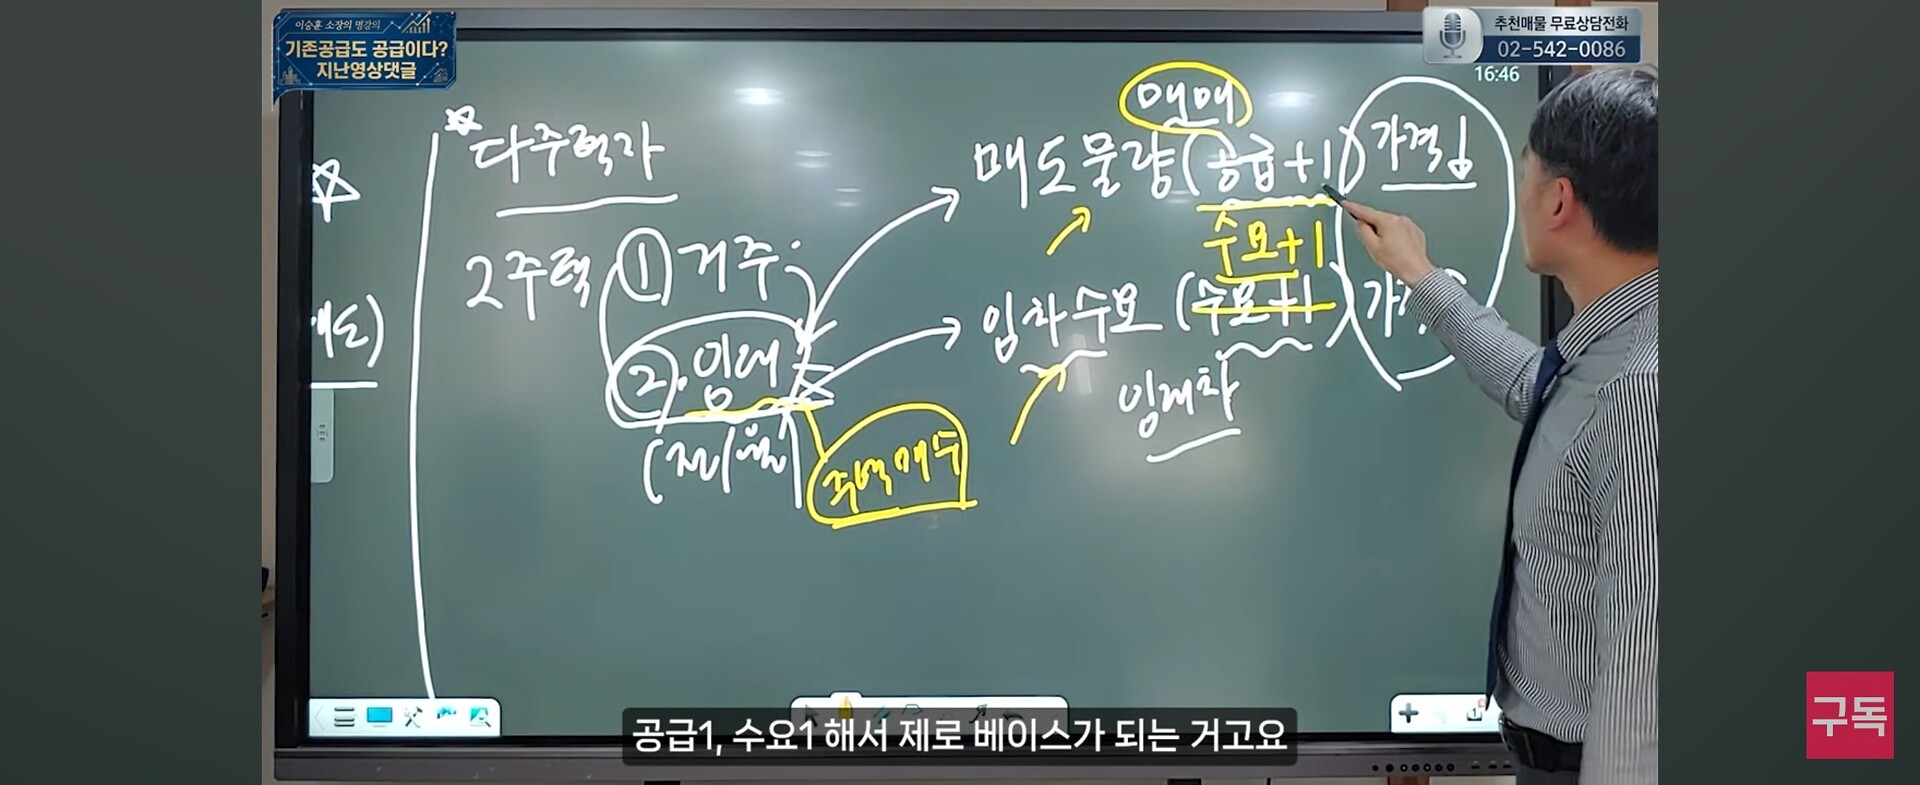 이승훈 소장의 명강의
기존공급도 공급이다?
지난영상댓글
추천매물 무료상담전화
02-542-0086
16:46
다주택자
2주택 ① 거주
② 임대
(전/월)
주택매수
매매
매도물량(공급+1) 가격
수요+1
임차수요(수요+1)
임대차
공급1, 수요1 해서 제로 베이스가 되는 거고요
구독